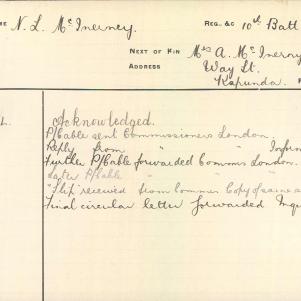 ME N. L. McInerney. REG. &c 10th Batt
NEXT OF KIN Mrs A. McInerny
ADDRESS Way St.
Kapunda.
L. Acknowledged.
P/Cable sent Commissioners London.
Reply from " " Inform
Further P/Cable forwarded Commrs London.
Later P/Cable " " "
"Slip" received from Commr Copy of same a
Final circular letter forwarded Inqu